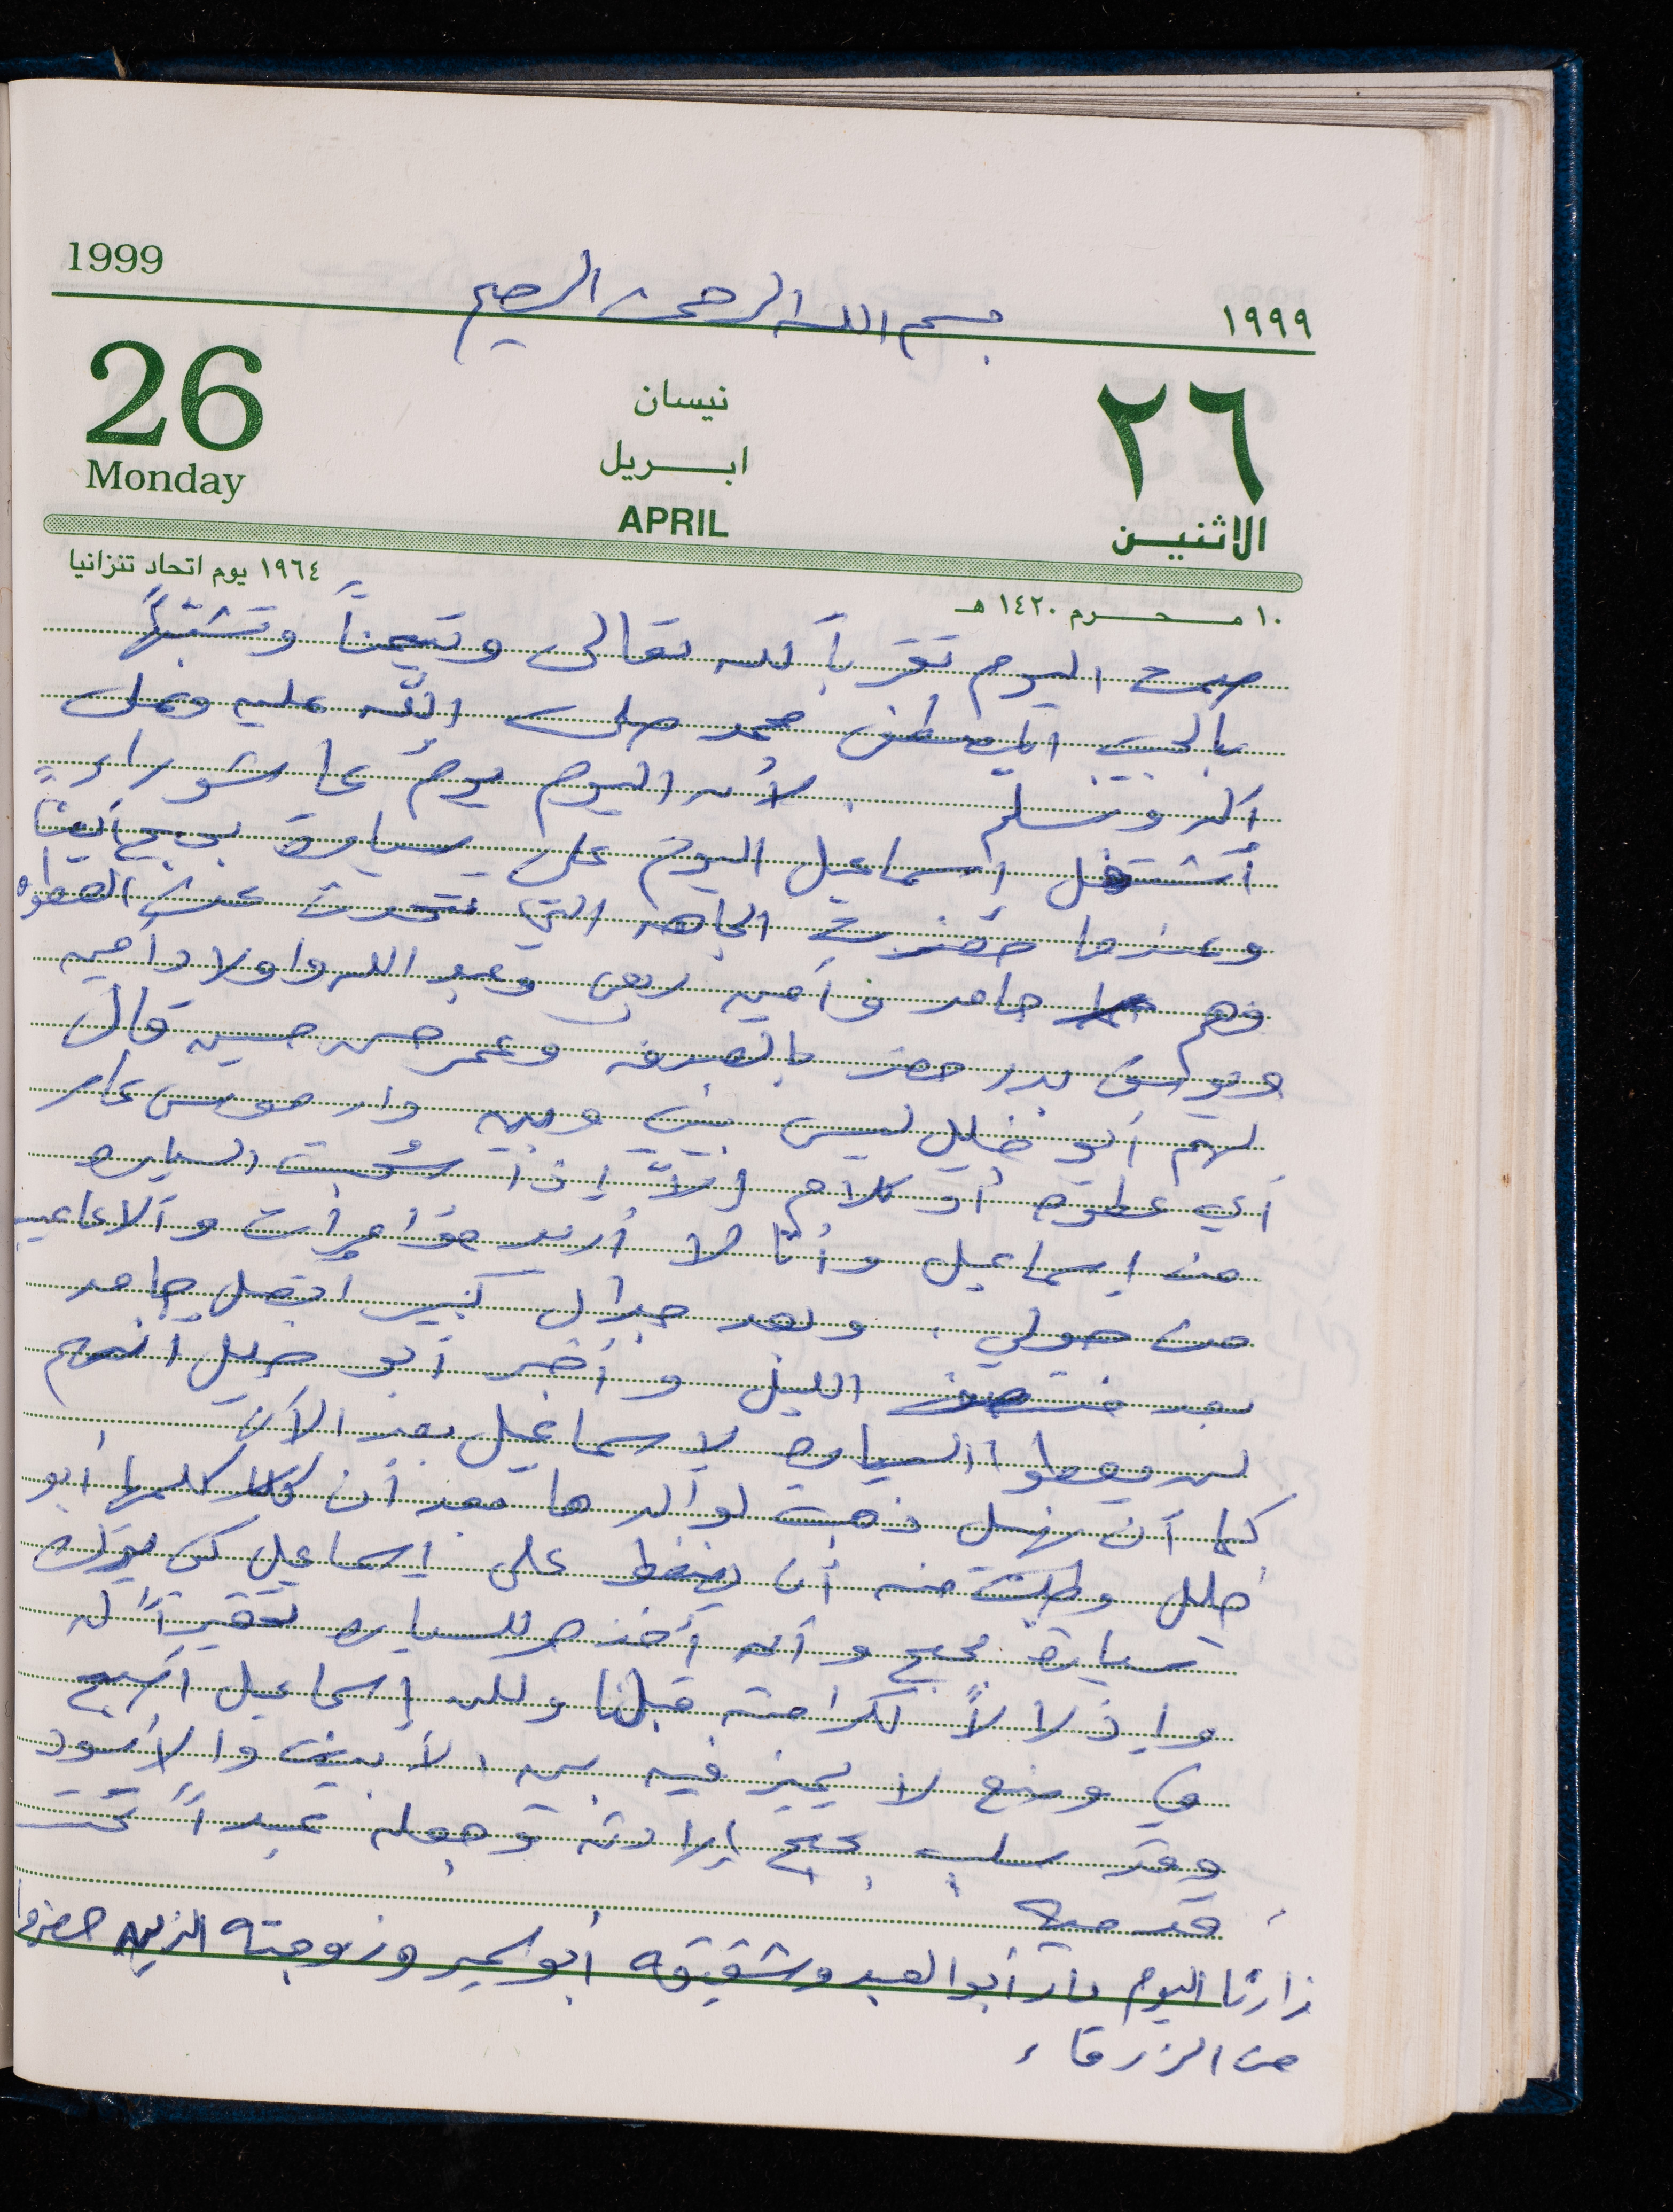 1999
بسم الله الرحمن الرحيم
١٩٩٩
26
Monday
نيسان
ابريل
APRIL
٢٦
الاثنين
١٩٦٤ يوم اتحاد تنزانيا
١٠ محرم ١٤٢٠ هـ
صمت اليوم تقرباً لله تعالى وتيمناً وتشبهاً
بالحبيب المصطفى محمد صلى الله عليه وعلى
آله وسلم . لأن اليوم يوم عاشوراء
أشتغل إسماعيل اليوم على سيارة بجبج أيضاً
وعندما حضرت الجاهه التي تتحدث عن العطوه
وهم حامد وأمين ربعي وعبد الله وأولاد أمين
ويوسف بدر حضر بالصدفه وعمر حسن حسين قال
لهم أبو خليل ليس بيني وبين دار موسى عامر
أي عطوه أو كلام إلاَّ إذا سُحبت السياره
من إسماعيل وأنا لا أريد مؤامرات وألاعيب
من حولي . وبعد جدال كبير اتصل حامد
بعد منتصف الليل وأخبر أبو خليل أنهم
لن يعطوا السياره لإسماعيل بعد الآن
كما أن نهيل ذهبت لوالدها بعد أن كلمها أبو
خليل وطلبت منه أن يضغط على إسماعيل كي يترك
سيارة بجبج وأن أخذه للسياره تحقيراً له
وإذلالاً لكرامته قبلنا ولكن إسماعيل أصبح
في وضع لا يميز فيه بين الأبيض والأسود
وقد سلب بجبج إرادته وجعله عبداً تحت
قدميه
زارنا اليوم دار أبو العبد وشقيقه أبو سمير وزوجته الذين حضروا
من الزرقاء